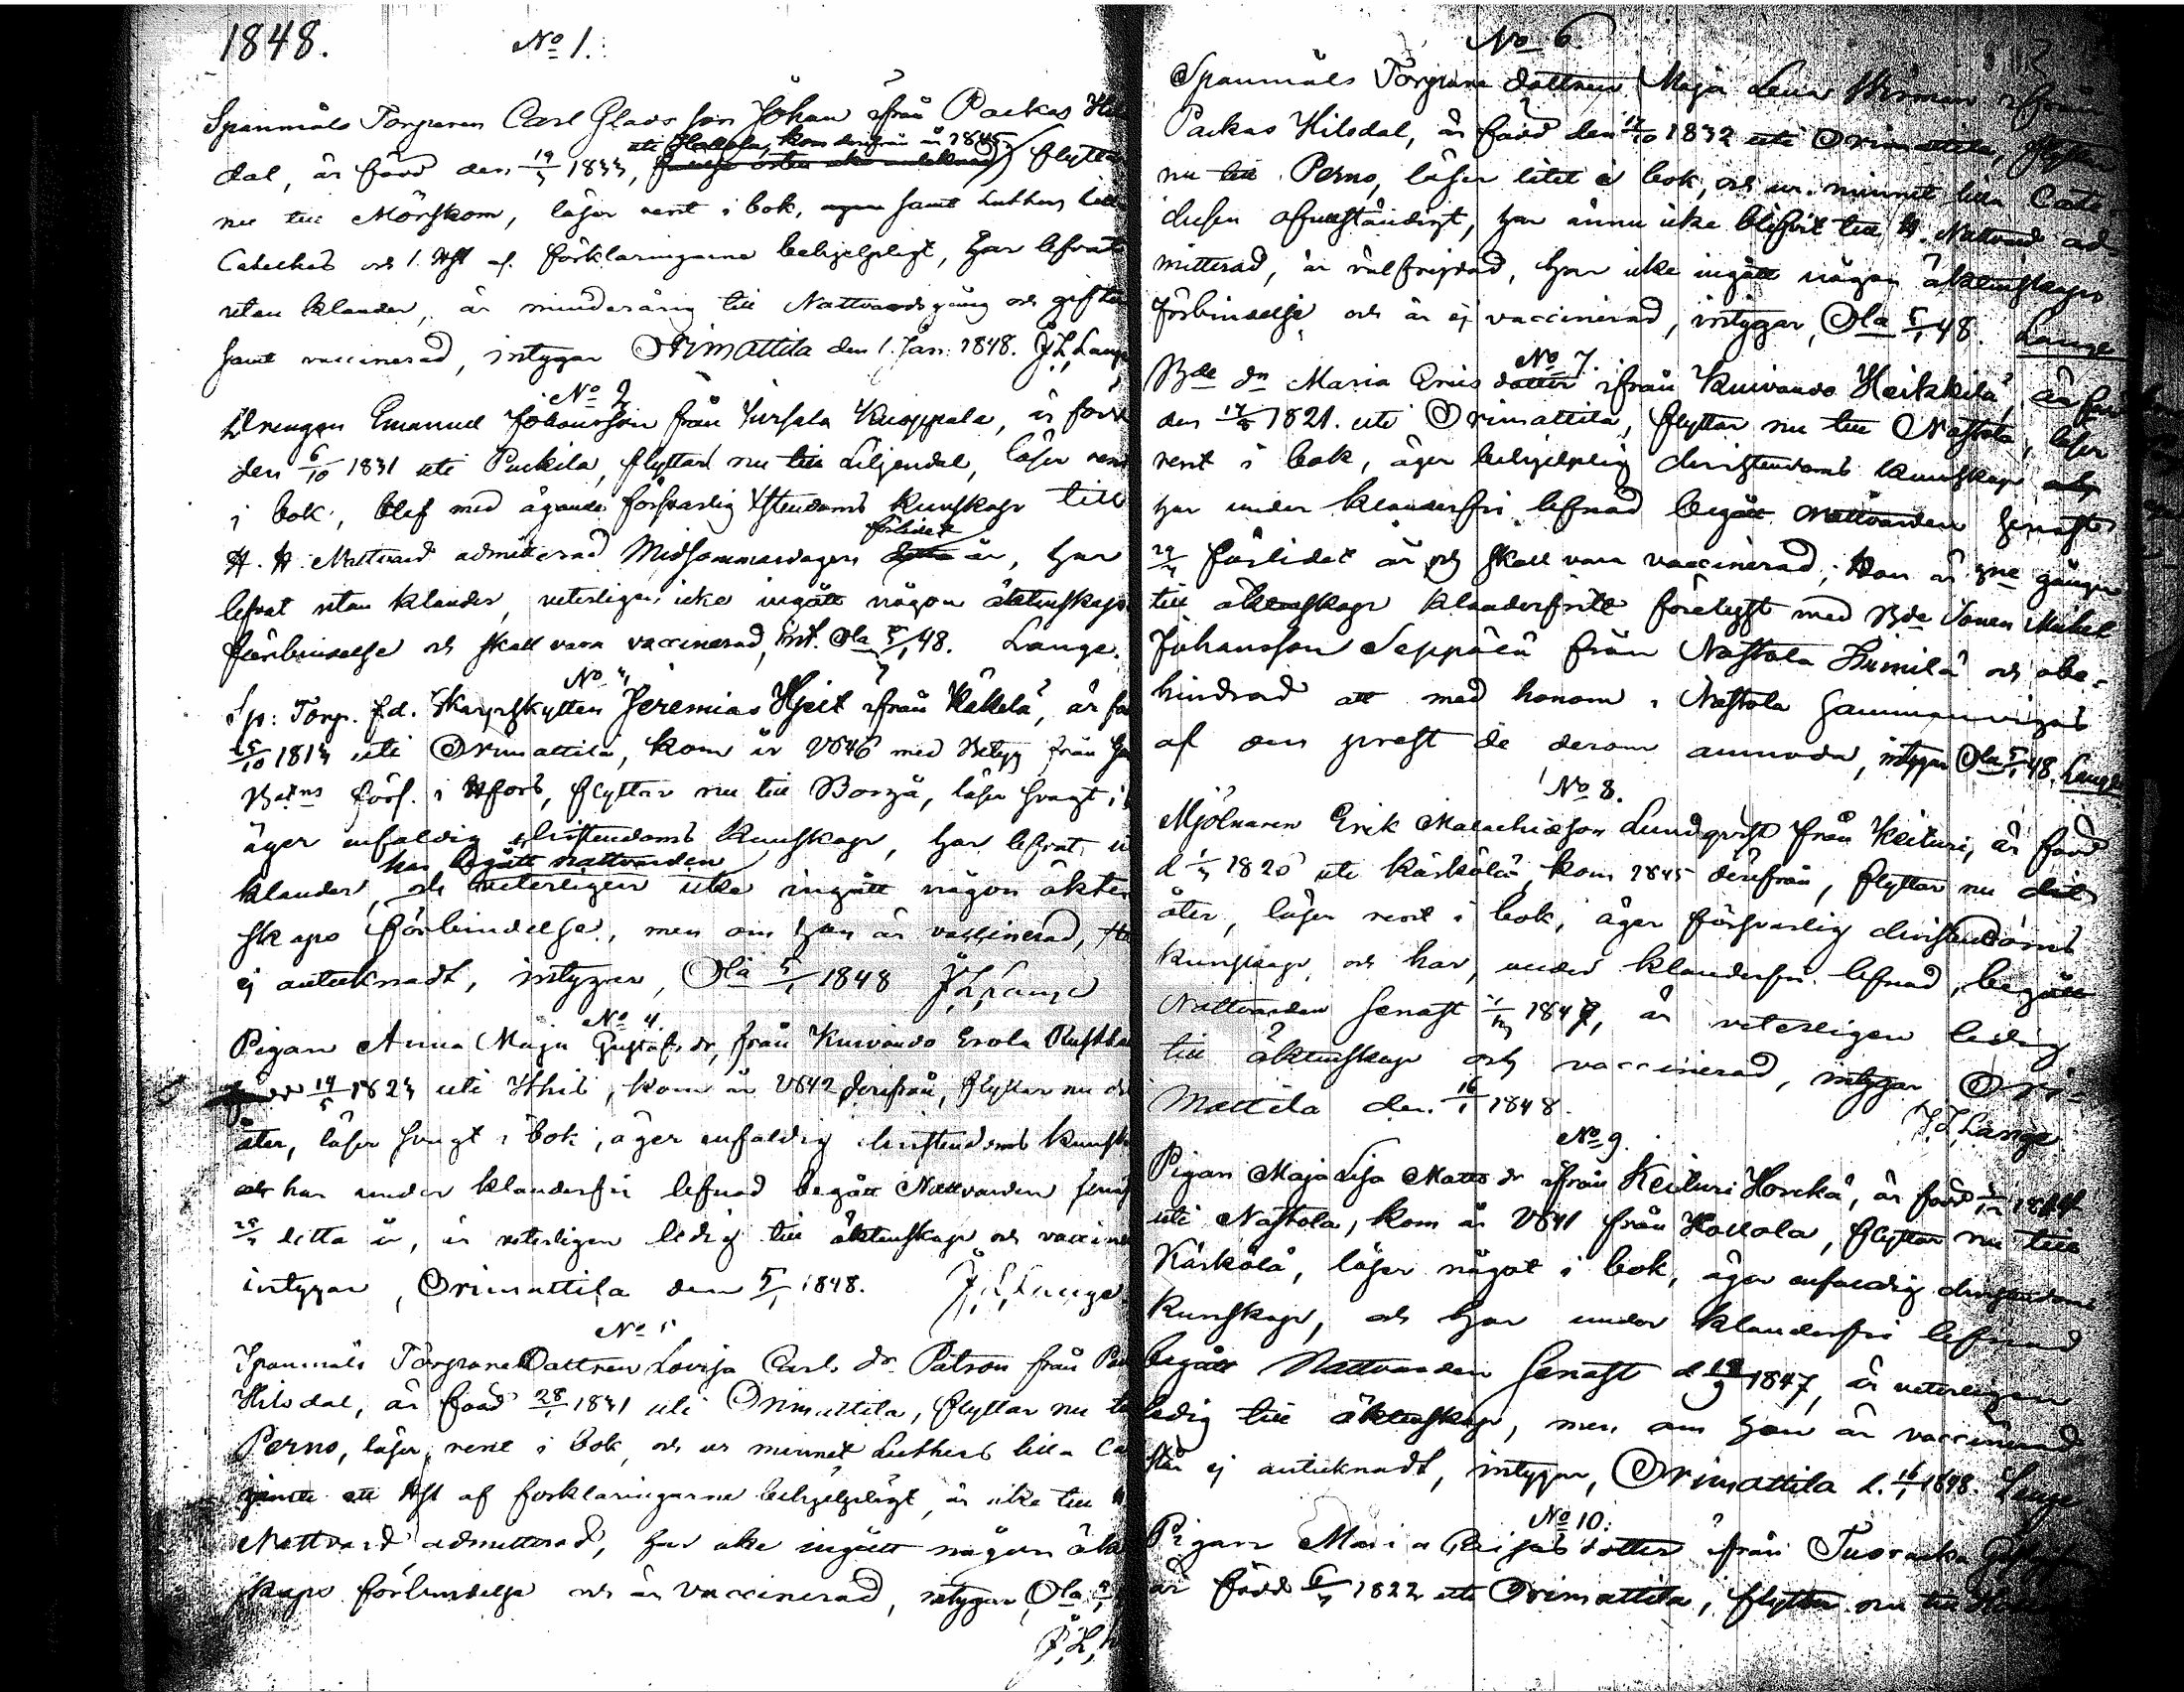 1848.
No 1.
Spanmåls Torparen Carl Glads son Johan ifrån Packas Hils
uti Hollola, kom derifrån år 1845
dal, är född den 19/3 1833, flyttar
nu till Mörskom, läser rent i bok, samt Luthers lilla
Cateches och 1. Hft af förklaringarne behjelpligt, har lefvat
utan klander, är minderårig till Nattvardsgång och gifte
samt vaccinerad, intygar Orimattila den 1. Jan: 1848. J.L.Lange
No 2
Drengen Emanuel Johansson från Virsala Knoppala, är född
den 6/10 1831 uti Puckila, flyttar nu till Liljendal, läser rent
i bok, blef med ägande försvarlig Xstendoms kunskap till
förlidet
H. H. Nattvard admitterad Midsommardagen år, har
lefvat utan klander, veterligen icke ingått någon äktenskaps
förbindelse och skall vara vaccinerad, int. Ola 5/1 48. Lange.
No 3
Sp: Torp. f.d. Skarpskytten Jeremias Hjelt ifrån Käkelä, är fö
25/10 1813 uti Orimattila, kom år 1846 med Betyg från
förs. i Hfors, flyttar nu till Borgå, läser svagt i
äger enfaldig christendoms kunskap, har lefvat u
har begått nattvarden
klander, och veterligen icke ingått någon äkten
skaps förbindelse, men om han är vaccinerad,
ej antecknadt, intygar, Ola 5/1 1848 J.L.Lange
No 4.
Pigan Anna Maja Gustafs dr, från Kuivando Erola Rusthå
född 14/5 1823 uti Ithis, kom år 1842 derifrån, flyttar nu di
åter, läser svagt i bok, äger enfaldig christendoms kunska
och har under klanderfri lefnad begått Nattvarden senas
detta år, är veterligen ledig till äktenskap och vaccine
intygar, Orimattila den 5/1 1848. J.L.Lange.
No 5
Spanmåls Torpare Dottren Lovisa Carls dr Patron från Pa
Hilsdal, är född 28/1 1831 uti Orimattila, flyttar nu ti
Perno, läser rent i bok och ur minnet Luthers lilla Ca
jemte ett Hft af förklaringarne behjelpligt, är icke till H
Nattvard admitterad, har icke ingått någon äkt
skaps förbindelse och är vaccinerad, intygar, Ola
J.L.
No 6.
Spanmåls Torpare dottren Maja Lena ifrån
Packas Hilsdal, är född den 1832 uti Orimattila, flyttar
nu till Perno, läser litet i bok, och ur minnet lilla Cate-
chesen ofullständigt, har ännu icke blifvit till H. Nattvard ad-
mitterad, är välfrejdad, har icke ingått någon äktenskaps
förbindelse och är ej vaccinerad, intygar, Ola 5/1 48. Lange
No 7.
Bde dr Maria Eriks dotter ifrån Kuivando Heikkilä, är född
den 1821. uti Orimattila, flyttar nu till Nastola, läser
rent i bok, äger behjelplig christendoms kunskap och
har under klanderfri lefnad begått nattvarden senast
förlidet år och skall vara vaccinerad; Hon är 3ne gånger
till äktenskap klanderfritt förelyst med Bde Sonen Mickel
Johansson Seppälä från Nastola och obe-
hindrad att med honom i Nastola sammanvigas
af den prest de derom anmoda, intygar Ola 5/1 48. Lange
No 8.
Mjölnaren Erik Malachiæson Lundqvist från Keituri, är född
d 1820 uti Kärkölä, kom 1845 derifrån, flyttar nu dit
åter, läser rent i bok, äger försvarlig christendoms
kunskap och har, under klanderfri lefnad, begått
Nattvarden senast 1847, är veterligen ledig
till äktenskap och vaccinerad, intygar Ori-
mattila den 16/1 1848.
J.L.Lange
No 9.
Pigan Maja Lisa Matts dr ifrån Keituri är född
uti Nastola, kom år 1841 från Hollola, flyttar nu till
Kärkölä, läser något i bok, äger enfaldig christendoms
kunskap, och har under klanderfri lefnad
begått Nattvarden senast d 1847, är veterligen
ledig till äktenskap, men om hon är vaccinerad
står ej antecknadt, intygar, Orimattila d. 16/1 1848. Lange
No 10:
Pigan Maria dotter ifrån
är född 1822 uti Orimattila, flyttar nu till